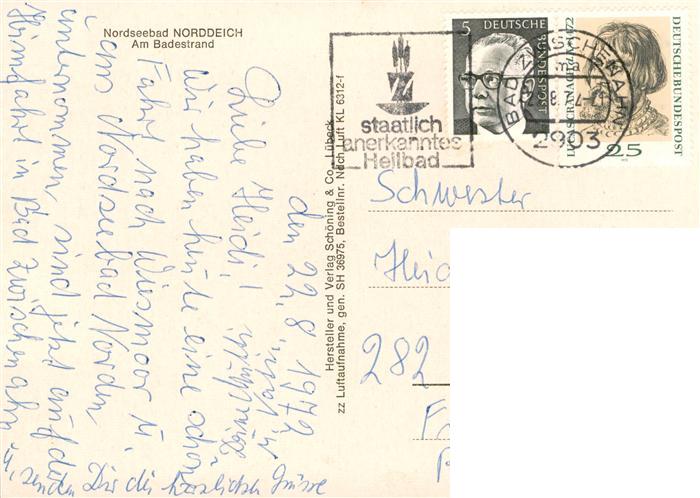 Nordseebad NORDDEICH
Am Badestrand
den 22.8.1972
Liebe Heidi!
Wir haben heute eine schöne
Fahrt nach Wiesmoor u.
ans Nordseebad Norden
unternommen, sind jetzt auf der
Heimfahrt in Bad Zwischenahn
u. senden Dir die herzlichsten Grüsse
Hersteller und Verlag Schöning & Co., Lübeck
zz Luftaufnahme, gen. SH 36975, Bestellnr. Nach Luft KL 6312-f
staatlich
anerkanntes
Heilbad
5 DEUTSCHE
BUNDESPOST
BAD ZWISCHENAHN
2903
LUCAS CRANACH d.Ä. 1472
DEUTSCHE BUNDESPOST
25
Schwester
Heid
282